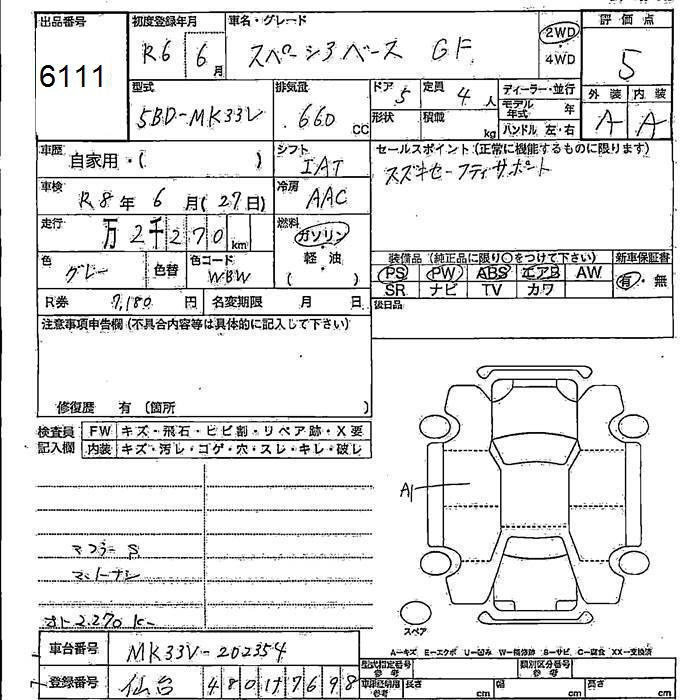 出品番号 初度登録年月 車名・グレード 評価点
6111 R6 6月 スペーシアベース GF 2WD・4WD 5
型式 排気量 ドア 5 定員 4人 ディーラー・並行 外装 内装
5BD-MK33V 660CC 形状 積載 kg モデル年式 年 A A
ハンドル 左・右
車歴 自家用・( ) シフト IAT セールスポイント(正常に機能するものに限ります)
スズキセーフティサポート
車検 R8年 6月(27日) 冷房 AAC
走行 万2千270km 燃料 ガソリン 軽・油 ( )
色 グレー 色替 色コード WBW
装備品(純正品に限り○をつけて下さい) 新車保証書
PS PW ABS エアB AW 有・無
SR ナビ TV カワ
R券 7,180円 名変期限 月 日 後日品
注意事項申告欄(不具合内容等は具体的に記入して下さい)
修復歴 有 (箇所 )
検査員記入欄 FW キズ・飛石・ヒビ割・リペア跡・X要
内装 キズ・汚レ・コゲ・穴・スレ・キレ・破レ
A1
マフラー S
マットナシ
2,270k
スペア
A-キズ E-エクボ U-凹み W-補修跡 S-サビ C-腐食 XX-交換済
車台番号 MK33V-202354
登録番号 仙台 480 17698
型式指定番号 参考 類別区分番号 参考
車庫証明用 参考 長さ cm 幅 cm 高さ cm